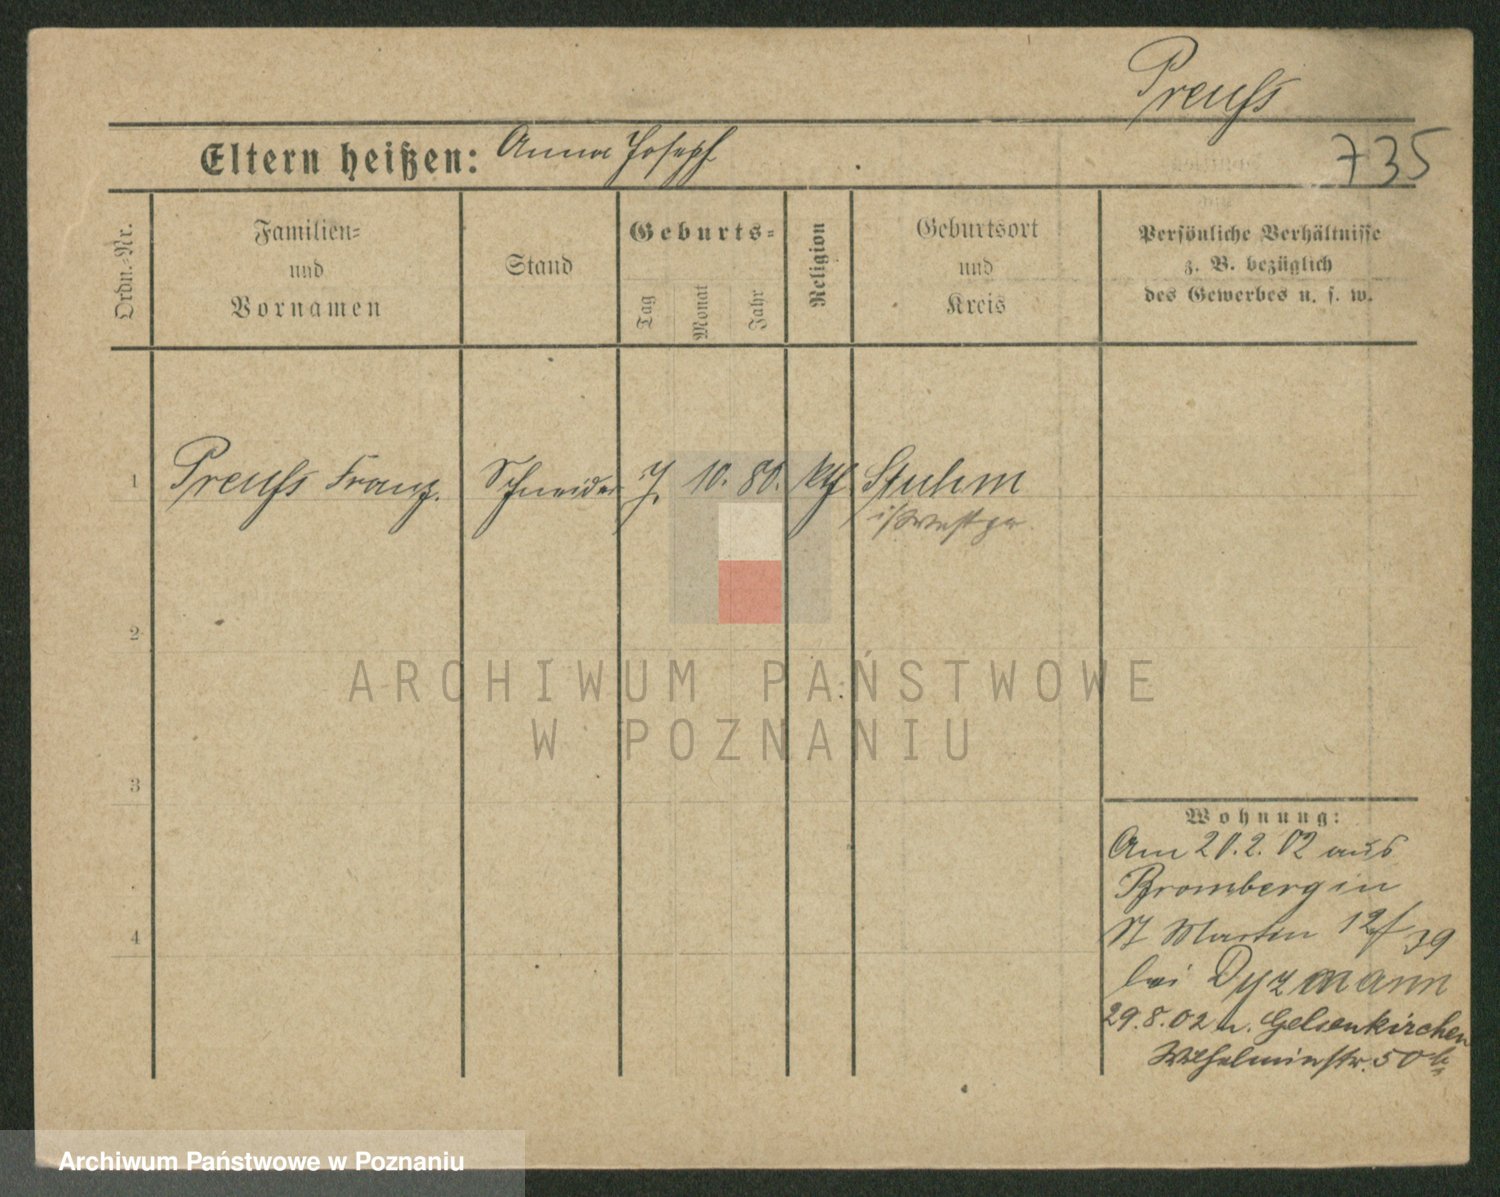 Preuſs
Eltern heißen: Anna Joseph
735
Ordn.-Nr.
Familien-
und
Vornamen
Stand
Geburts-
Tag
Monat
Jahr
Religion
Geburtsort
und
Kreis
Persönliche Verhältnisse
z. B. bezüglich
des Gewerbes u. s. w.
1 Preuſs Franz. Schneider 7. 10. 80. kth. Stuhm
i/Westpr.
2
3
4
Wohnung:
Am 20.2.02 aus
Bromberg in
St Martin 12/39
bei Dyzmann
29.8.02 n. Gelsenkirchen
Wilhelminstr. 50
ARCHIWUM PAŃSTWOWE
W POZNANIU
Archiwum Państwowe w Poznaniu